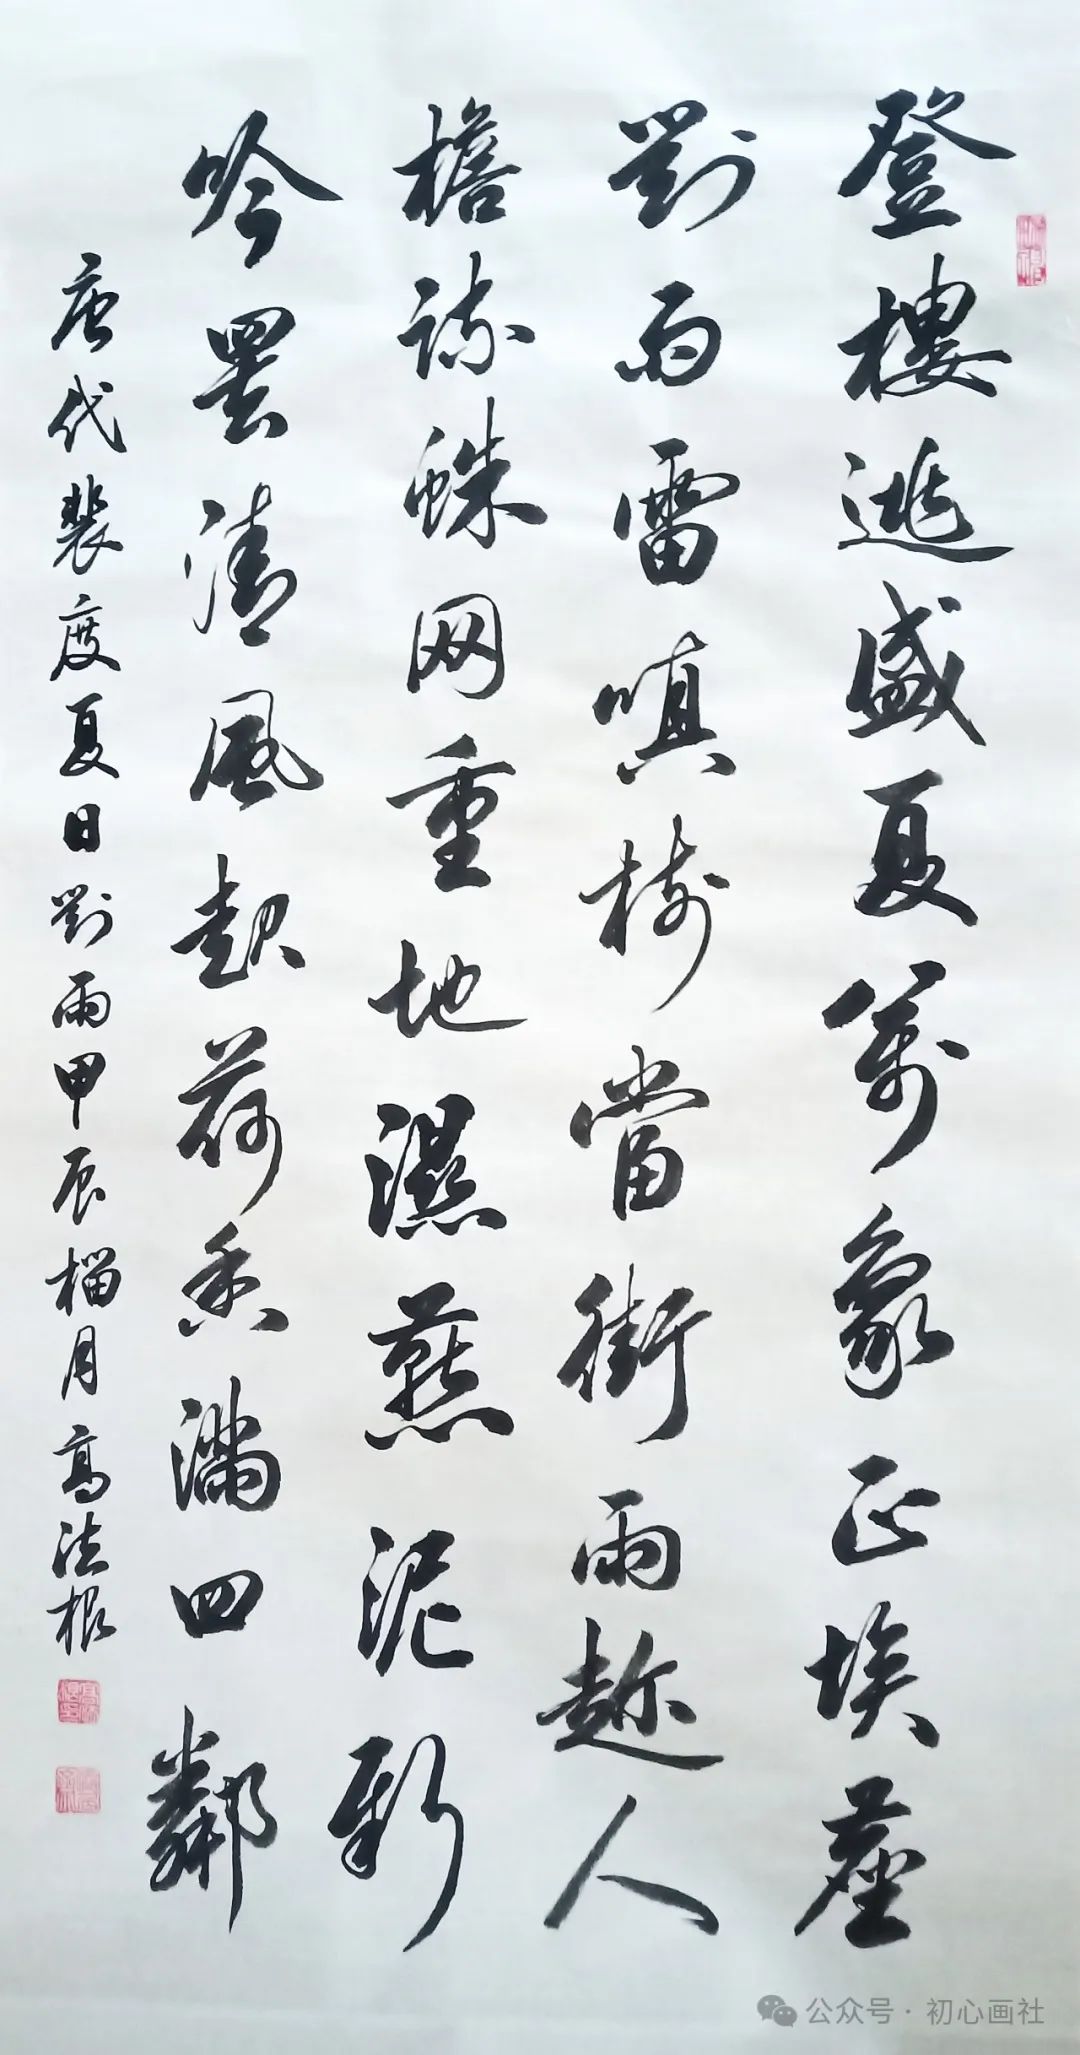 登樓逃盛夏萬象正埃塵
對面雷嗔樹當街雨趁人
檐疏蛛网重地濕燕泥新
吟罢清風起荷香滿四鄰
唐代裴度夏日對雨甲辰榴月高法根
公众号·初心画社